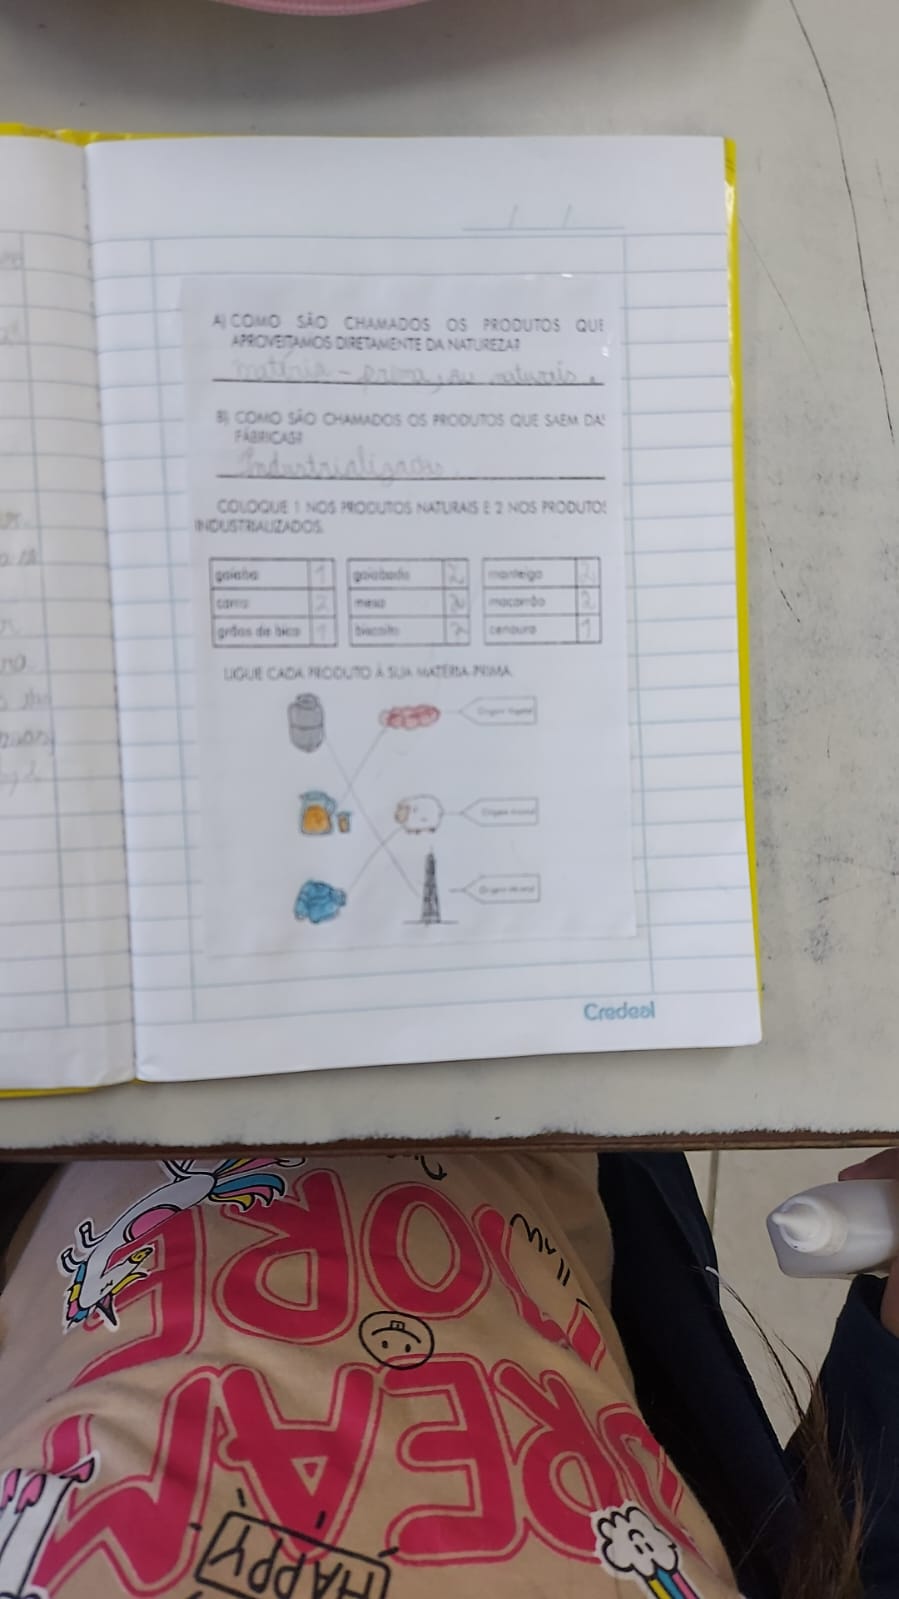 A) COMO SÃO CHAMADOS OS PRODUTOS QUE
APROVEITAMOS DIRETAMENTE DA NATUREZA?
matéria - prima, ou naturais.
B) COMO SÃO CHAMADOS OS PRODUTOS QUE SAEM DAS
FÁBRICAS?
Industrializados.
COLOQUE 1 NOS PRODUTOS NATURAIS E 2 NOS PRODUTOS
INDUSTRIALIZADOS.
goiaba 1 goiabada 2 manteiga 2
carro 2 mesa 2 macarrão 2
grãos de bico 1 biscoito 2 cenoura 1
LIGUE CADA PRODUTO À SUA MATÉRIA-PRIMA.
Origem vegetal
Origem animal
Origem mineral
Credeal
MORE
DREAM
HAPPY